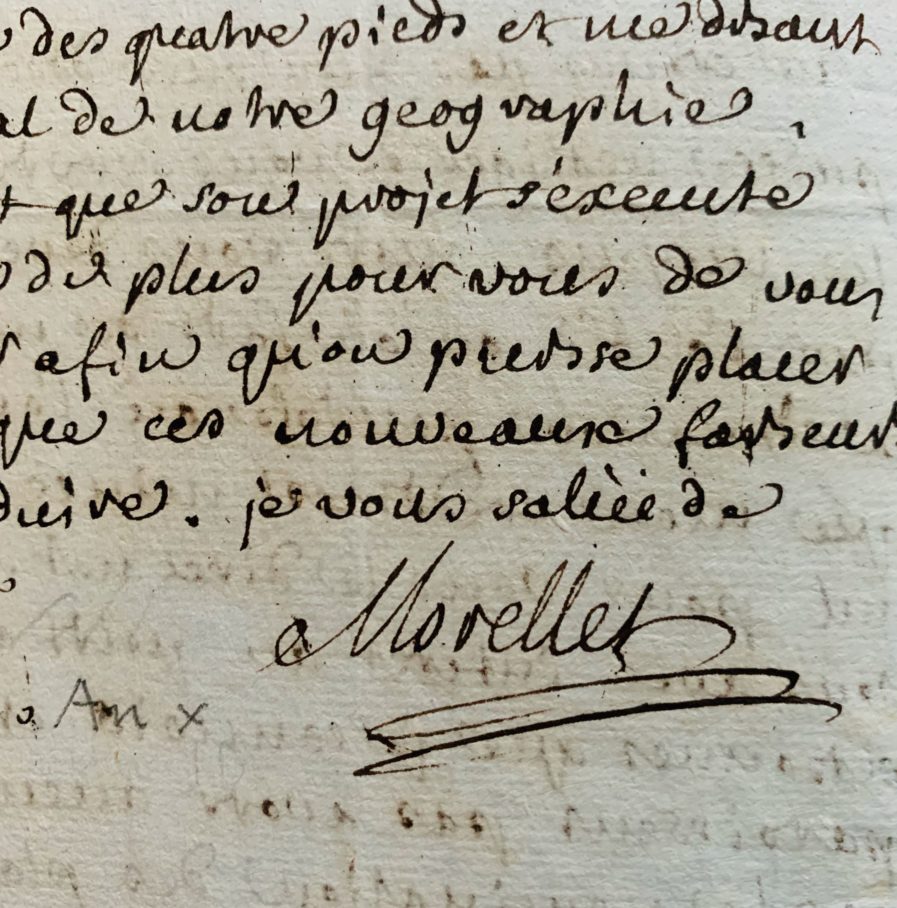 des quatre pieds et me disant
al de notre geographie.
que son projet s'execute
de plus pour vous de vous
afin qu'on puisse placer
que ces nouveaux faiseurs
duire. je vous salüe de
Morellet
An x